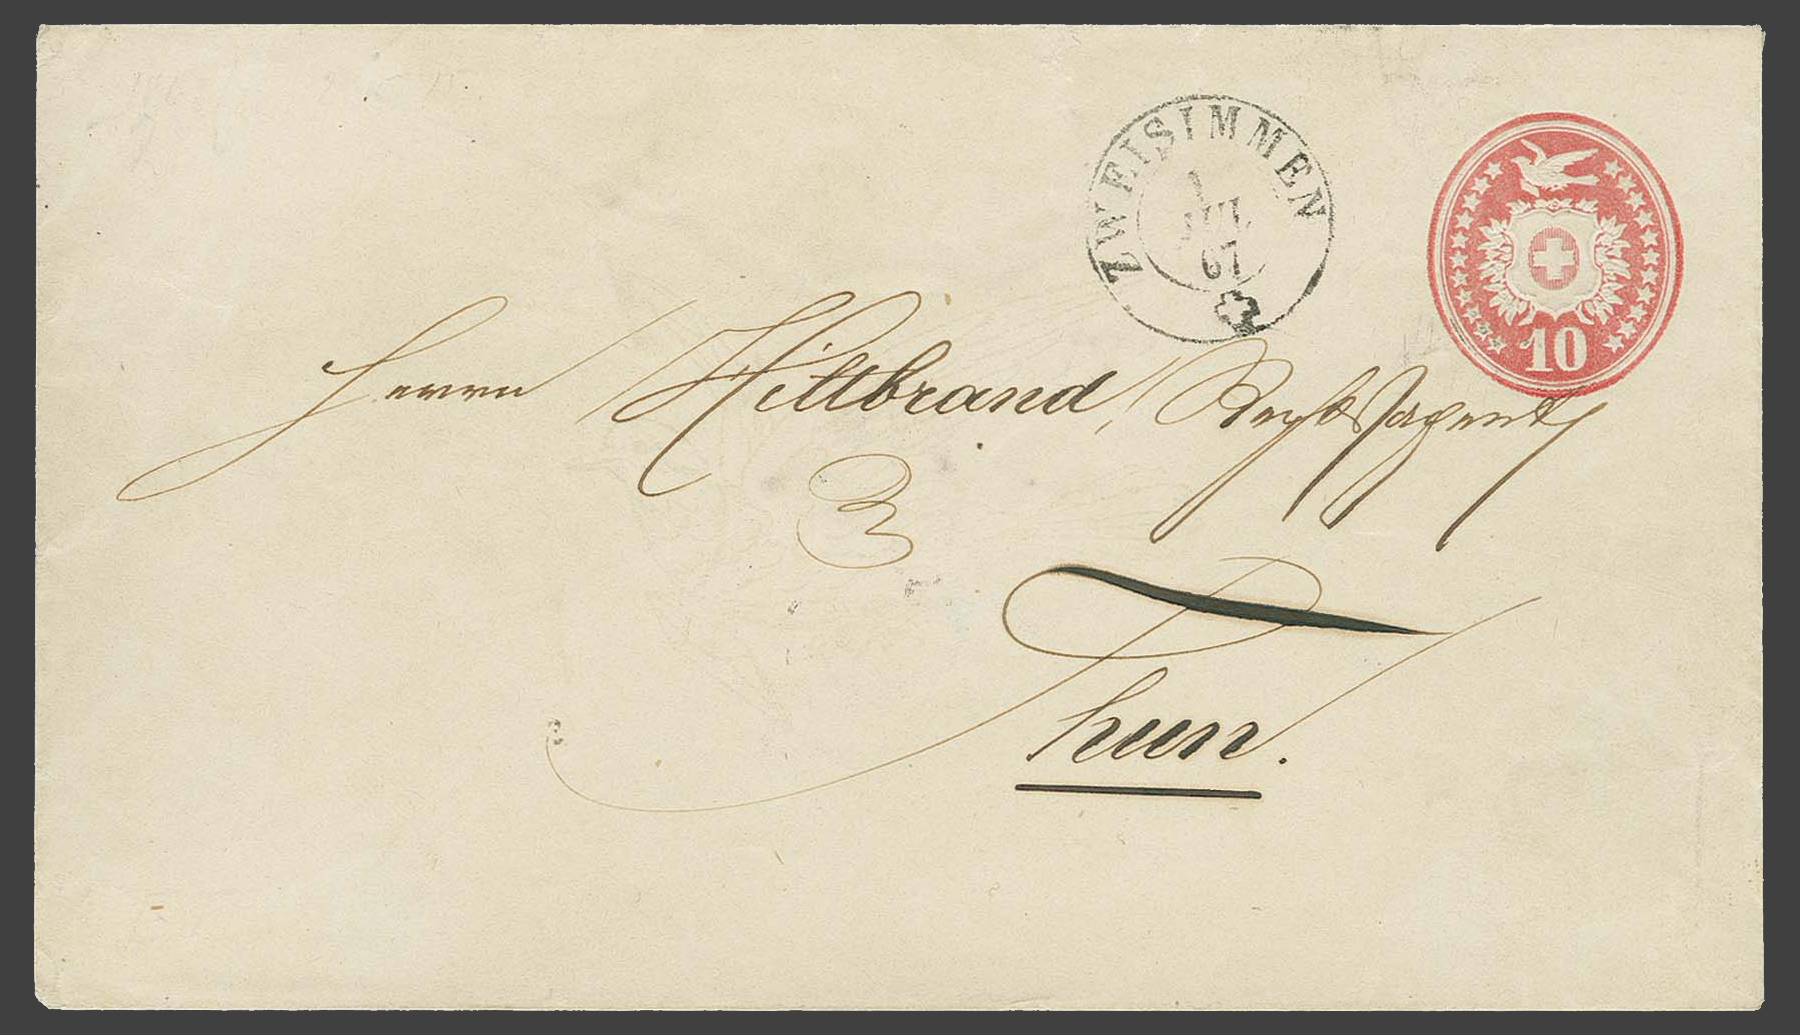 ZWEISIMMEN
1
JUL
67
10
Herrn Hiltbrand, Rechtsagent
in
Thun.